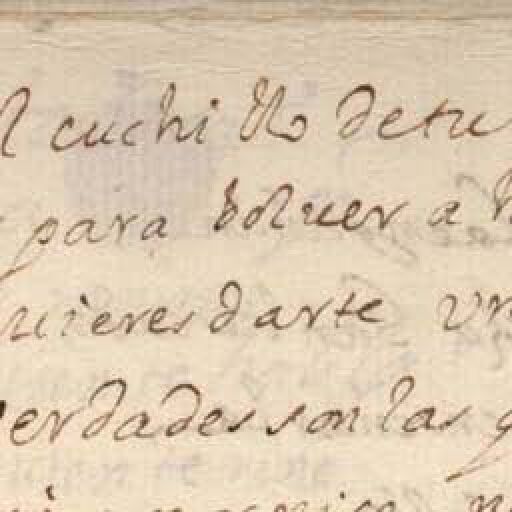 l cuchillo de tu
para boluer a
uieres darte
erdades son las q